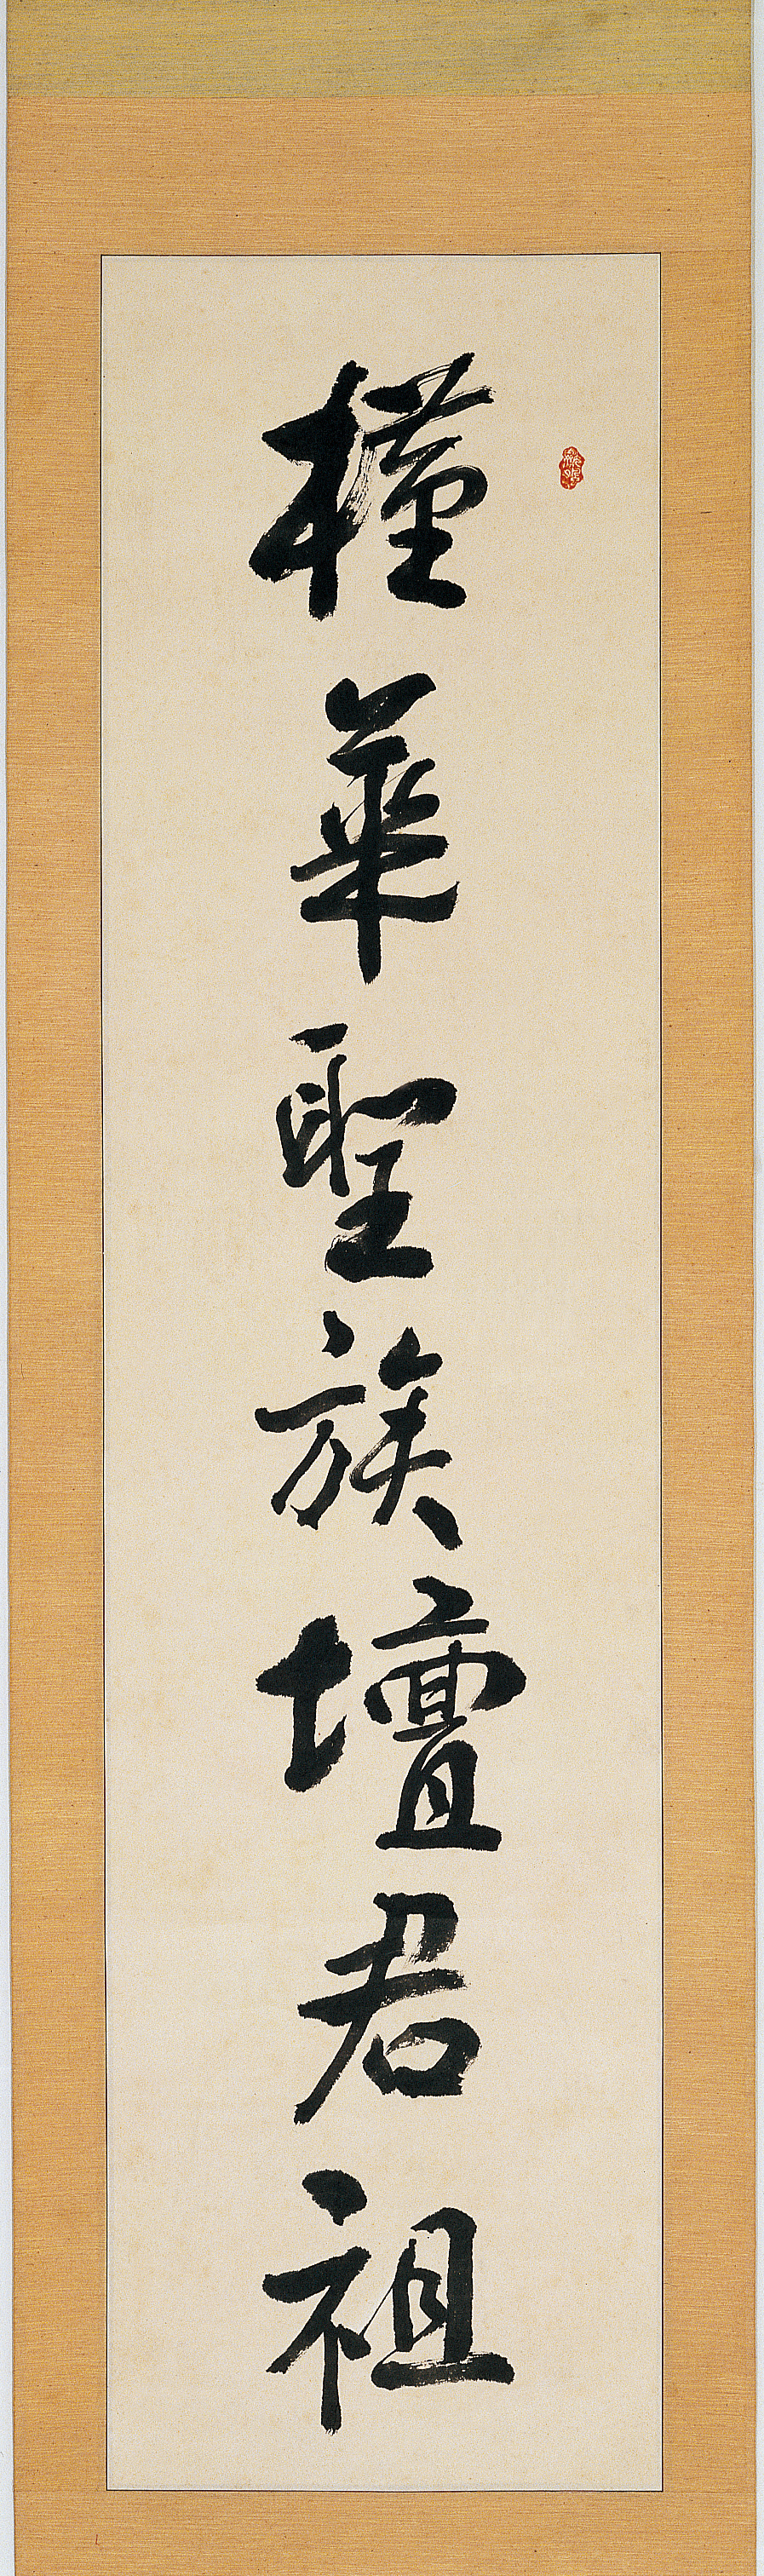 槿華聖族壇君祖